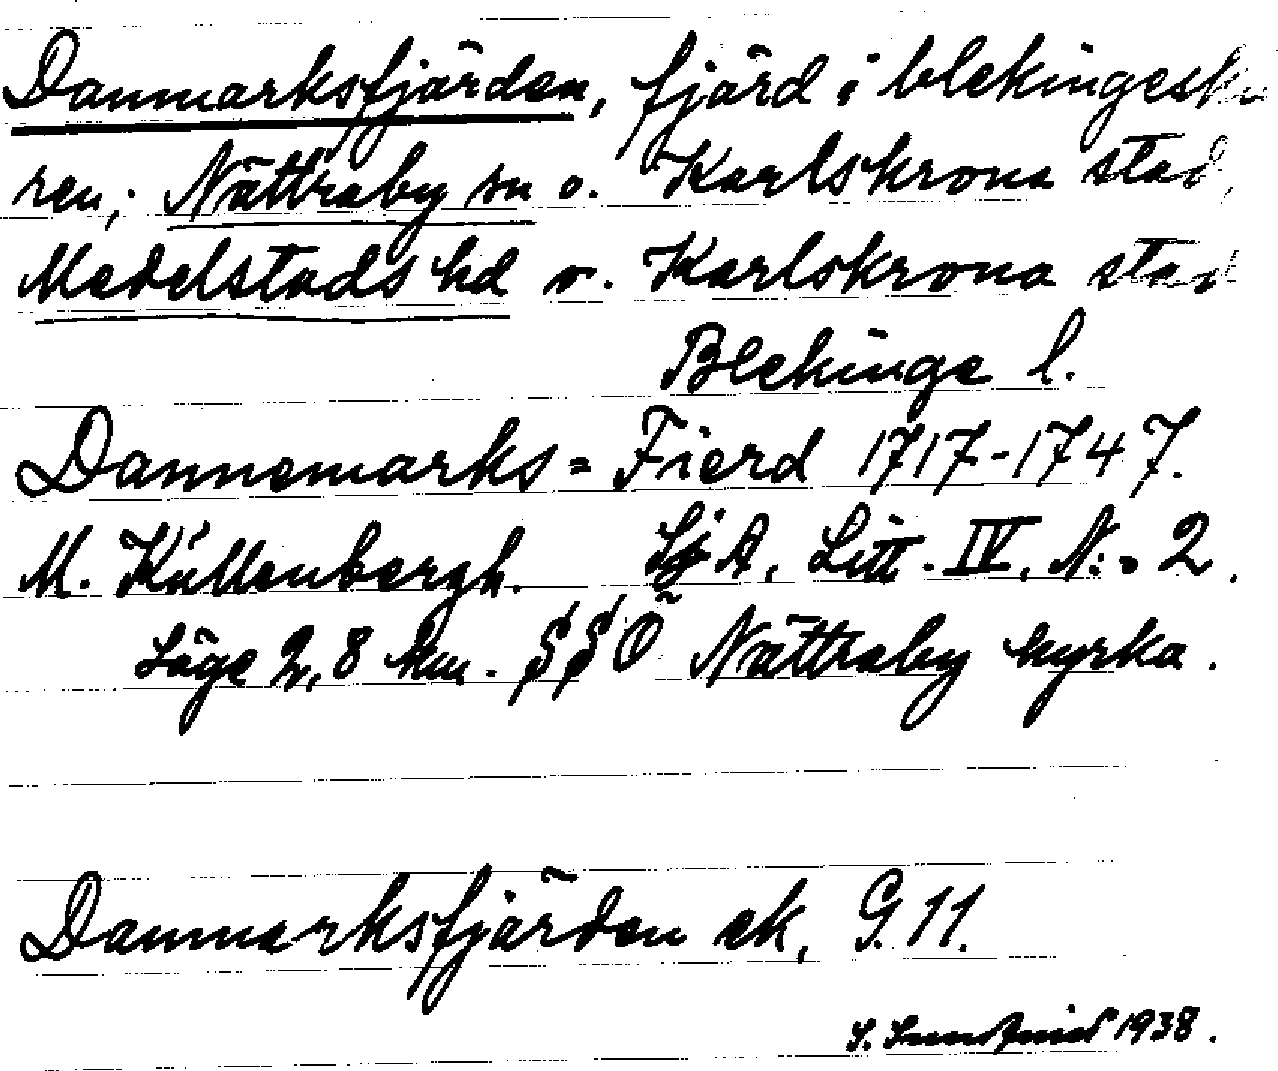 Danmarksfjärden, fjärd i blekingeskä
ren; Nättraby sn o. Karlskrona stad,
Medelstads hd o. Karlskrona stad
Blekinge l.
Dannemarks = Fierd 1717-1747.
M. Küllenbergh. SjA, Litt. IV, N:o 2.
Läge 2,8 km. SSÖ Nättraby kyrka.
Danmarksfjärden ek, G. 11.
S. Sundquist 1938.